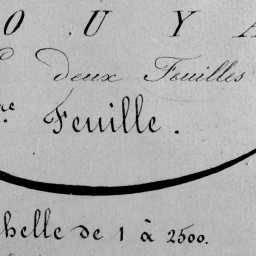 O U Y A
deux Feuilles
re Feuille.
helle de 1 à 2500.